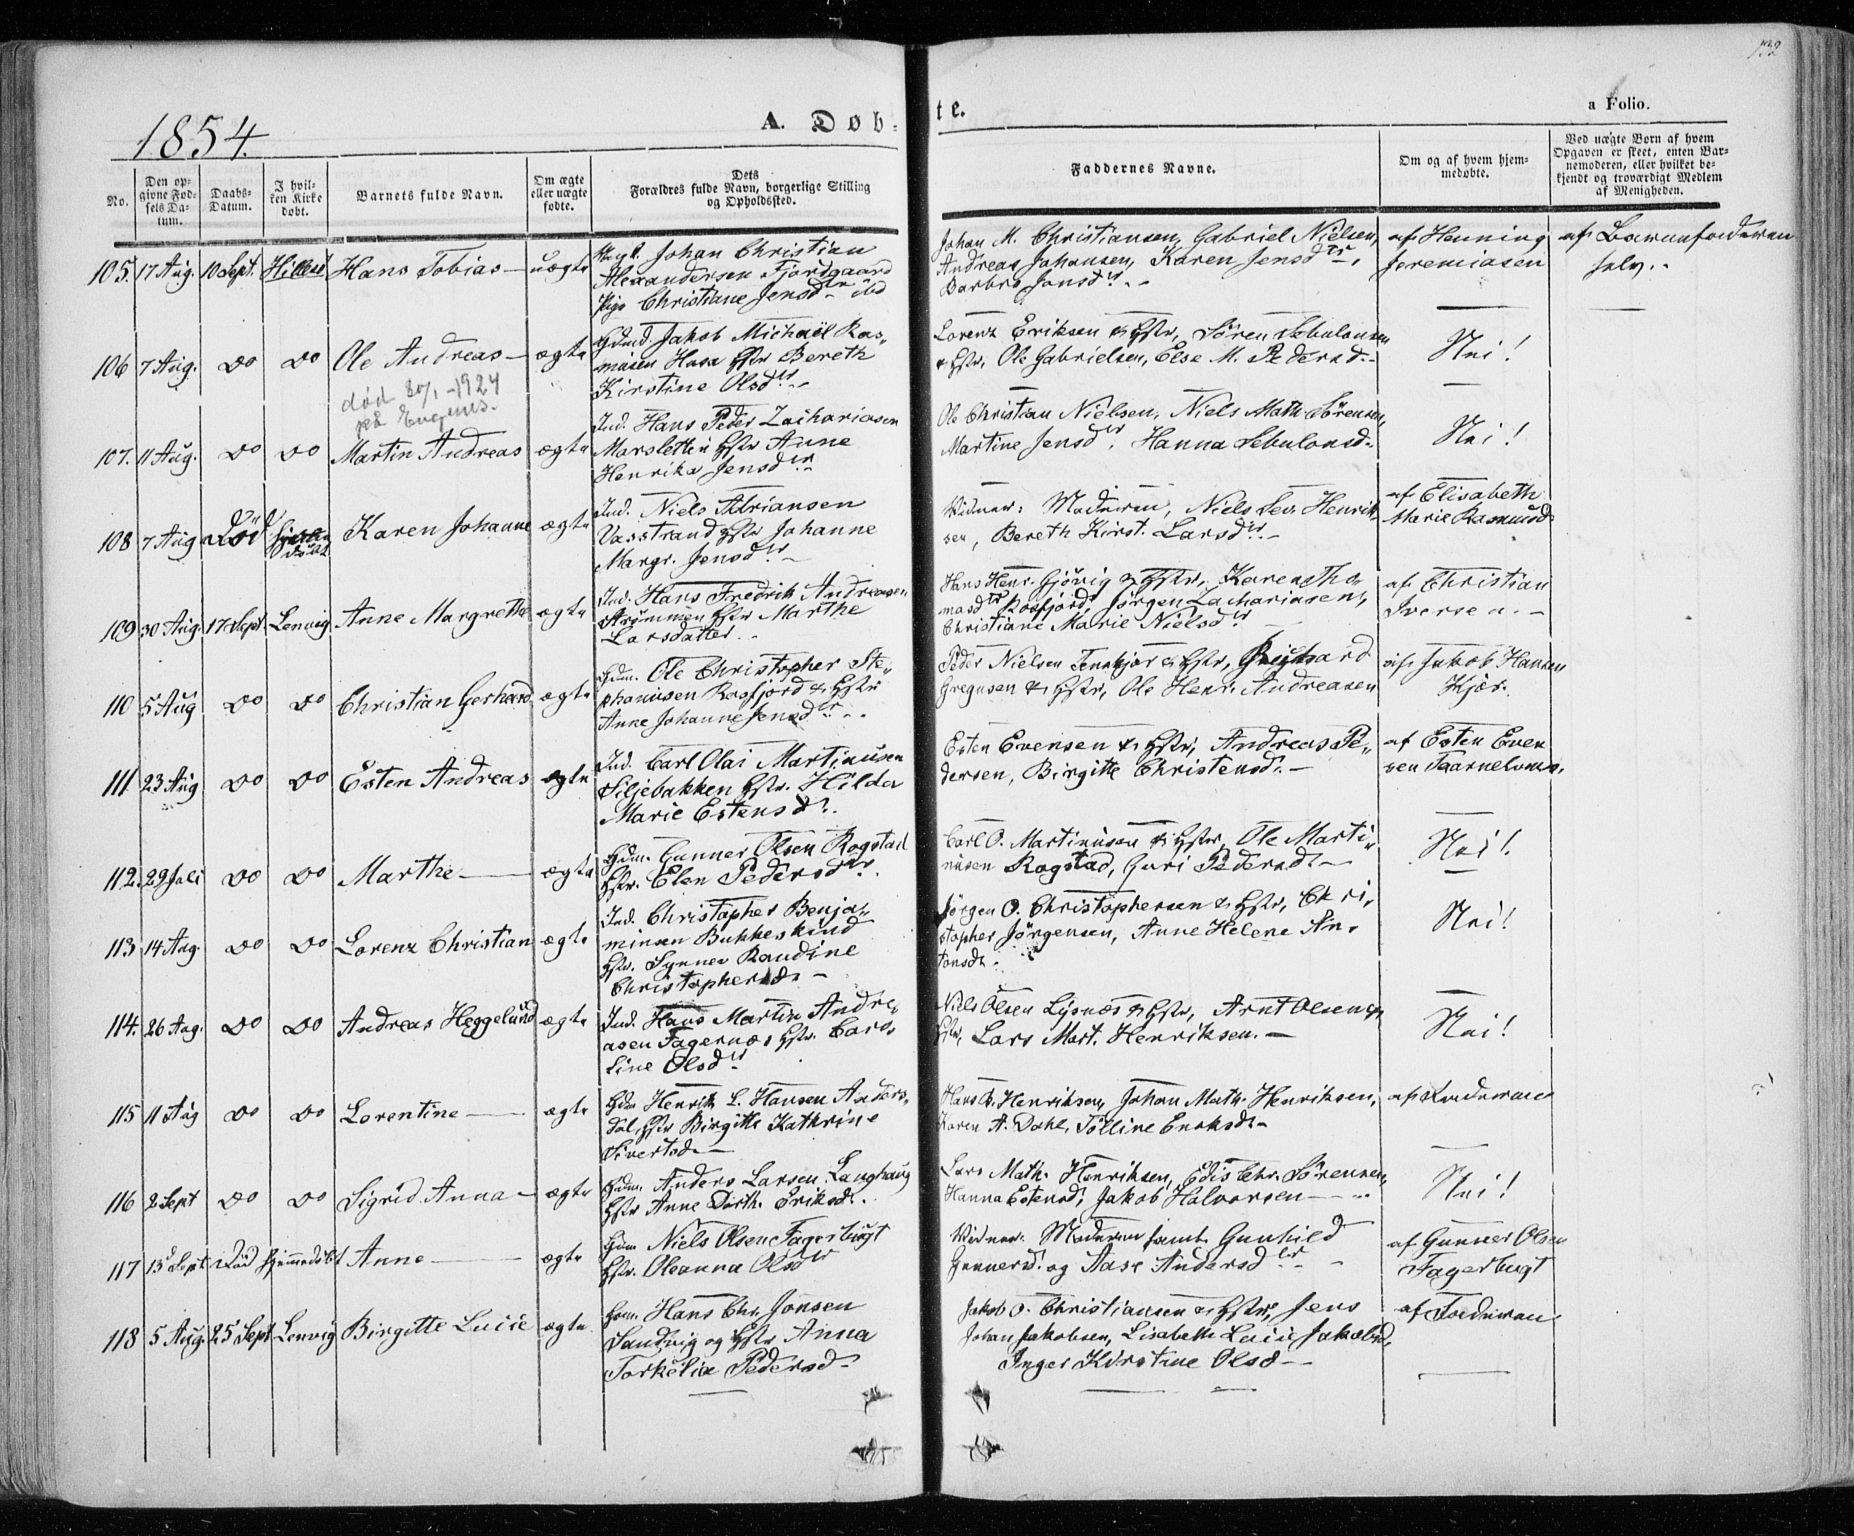 132
a Folio.
1854.
A. Døb-
te.
No.
Den op-
givne Fød-
sels Da-
tum.
Daabs-
Datum.
I hvil-
ken Kirke
døbt.
Barnets fulde Navn.
Om ægte
eller uægte
fødte.
Dets
Forældres fulde Navn, borgerlige Stilling
og Opholdssted.
Faddernes Navne.
Om og af hvem hjem-
medøbte.
Ved uægte Børn af hvem
Opgaven er skeet, enten Bar-
nemoderen, eller hvilket be-
kjendt og troværdigt Medlem
af Menigheden.
105. 17 Aug. 10 Sept. Hillesö Hans Tobias uægte
Johan Christian
Alexandersen Fjordgaard
Pige Christiane Jensdtr ibd
Johan M. Christiansen, Gabriel Nielsen,
Andreas Johansen, Karen Jensdtr,
Barbro Jonsdtr
af Henning
Jeremiasen
af Barnefaderen
selv.
106 7 Aug. Do Do Ole Andreas ægte
død 30/1 -1924
Gdmd. Jakob Michael Ras-
musen Hustr Bereth
Kirstine Olsdtr
Lorenz Eriksen & Hstr, Sören Sebulonsen
& Hstr, Ole Gabrielsen, Else M. Pedersd.
Nei!
107. 11 Aug. Do Do Martin Andreas ægte
Ind. Hans Peder Zachariasen
Marsletten Hstr Anne
Henrika Jensdtr
Ole Christian Nielsen, Niels Math. Sörensen,
Martine Jensdtr, Hanna Sebulonsd.
Nei!
108 7 Aug Död Karen Johanne ægte
Ind. Niels Adriansen
Vasstrand Hstr Johanne
Margr. Jensdtr
Vidner: Moderen, Niels Sev. Henrik-
sen, Bereth Kirst. Larsdtr
af Elisabeth
Marie Rasmusd
109 30 Aug. 17 Sept Lenvig Anne Margrethe ægte
Ind. Hans Fredrik Andreasen
Strömmen Hstr Marthe
Larsdatter
Hans Henr. Gjövig & Hstr, Karen Tho-
masdtr Rosfjord, Jörgen Zachariasen,
Christiane Marie Nielsdtr
af Christian
Iversen
110 5 Aug Do Do Christian Gerhard ægte
Gdm. Ole Christopher Ste-
phanusen Rosfjord & Hstr
Anne Johanne Jensdtr
Peder Nielsen Tennkjær & Hstr,
Gregusen & Hstr, Ole Henr. Andreasen
af Jakob Hansen
Kjær.
111 23 Aug Do Do Esten Andreas ægte
Ind. Carl Olai Martinusen
Siljebakken Hstr. Hilda
Marie Estensd.
Esten Evensen & Hstr, Andreas Pe-
dersen, Birgitte Christensd.
af Esten Even
sen
112. 29 Juli Do Do Marthe ægte
Gdm. Gunner Olsen Rogstad
Hstr. Elen Pedersdtr
Carl O. Martinusen & Hstr, Ole Marti-
nusen Rogstad, Guri Pedersd.
Nei!
113 14 Aug. Do Do Lorenz Christian ægte
Ind. Christopher Benja-
minsen Bukkeskind
Hstr. Synner Randine
Christophersd.
Jörgen O. Christophersen & Hstr, Chri-
stopher Jörgensen, Anne Helene An-
tonsd.
Nei!
114. 26 Aug. Do Do Andreas Heggelund ægte
Ind. Hans Martin Andre-
asen Fagernæs Hstr. Caro-
line Olsdtr
Niels Olsen Lysnæs & Hstr, Arnt Olsen &
Hstr, Lars Mart. Henriksen.
Nei!
115 11 Aug Do Do Lorentine ægte
Gdm Henrik L. Hansen Anders-
dal, Hstr Birgitte Kathrine
Sivertsd.
Hans A. Henriksen, Johan Math. Henriksen,
Karen A. Dahl, Tölline Enoksd.
af Faderen
116 2 Sept Do Do Sigrid Anna ægte
Gdm. Anders Larsen Langhaug
Hstr Anne Dorth. Eriksd.
Lars Math. Henriksen, Edis Chr. Sörensen,
Hanna Estensd, Jakob Halvorsen
Nei!
117 13 Sept Död hjemmedöbt Anne ægte
Gdm Niels Olsen Fagerbugt
Hstr. Oleanna Olsdtr
Vidner: Moderen samt Gunhild
Gunnersd. og Aase Andersdtr
af Gunner Olsen
Fagerbugt
118 5 Aug. 25 Sept Lenvig Birgitte Lucie ægte
Gdm. Hans Chr. Jonsen
Sandvig og Hstr Anna
Torkelia Pedersd.
Jakob O. Christiansen & Hstr, Jens
Johan Jakobsen, Lisabeth Lucie Jakobsd,
Inger Kirstine Olsd
af Faderen